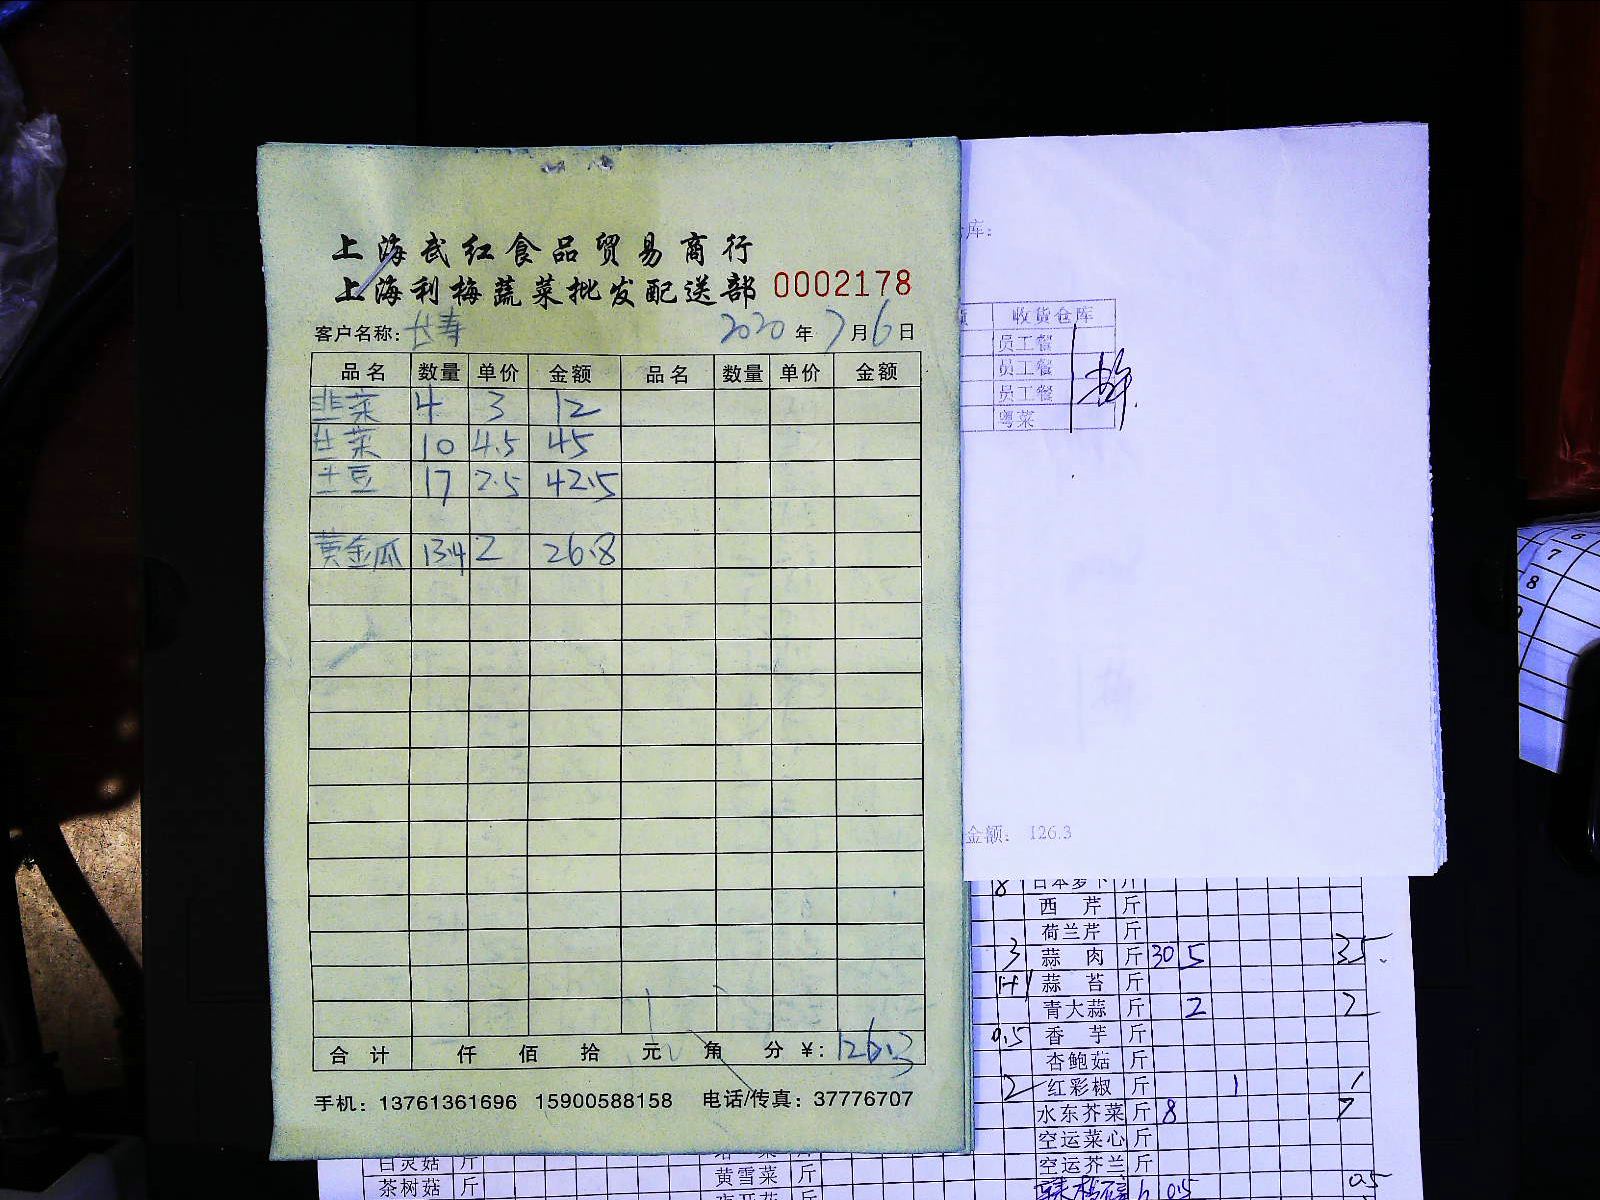 上海武红食品贸易商行
上海利梅蔬菜批发配送部 0002178
客户名称: 长寿 2020 年 7 月 6 日
品名 数量 单价 金额 品名 数量 单价 金额
韭菜 4 3 12
生菜 10 4.5 45
土豆 17 2.5 42.5
黄金瓜 13.4 2 26.8
合计 仟 佰 拾 元 角 分 ¥: 126.3
手机: 13761361696 15900588158 电话/传真: 37776707
库:
额 收货仓库
员工餐
员工餐
员工餐
粤菜
金额: 126.3
8 日本萝卜 斤
西芹 斤
荷兰芹 斤
3 蒜肉 斤 30 5 35
蒜苔 斤
青大蒜 斤 2 2
0.5 香芋 斤
杏鲍菇 斤
2 红彩椒 斤 1 1
水东芥菜 斤 8 7
空运菜心 斤
空运芥兰 斤
0.5 0.5
白灵菇 斤
茶树菇 斤
黄雪菜 斤
6
7
8
9